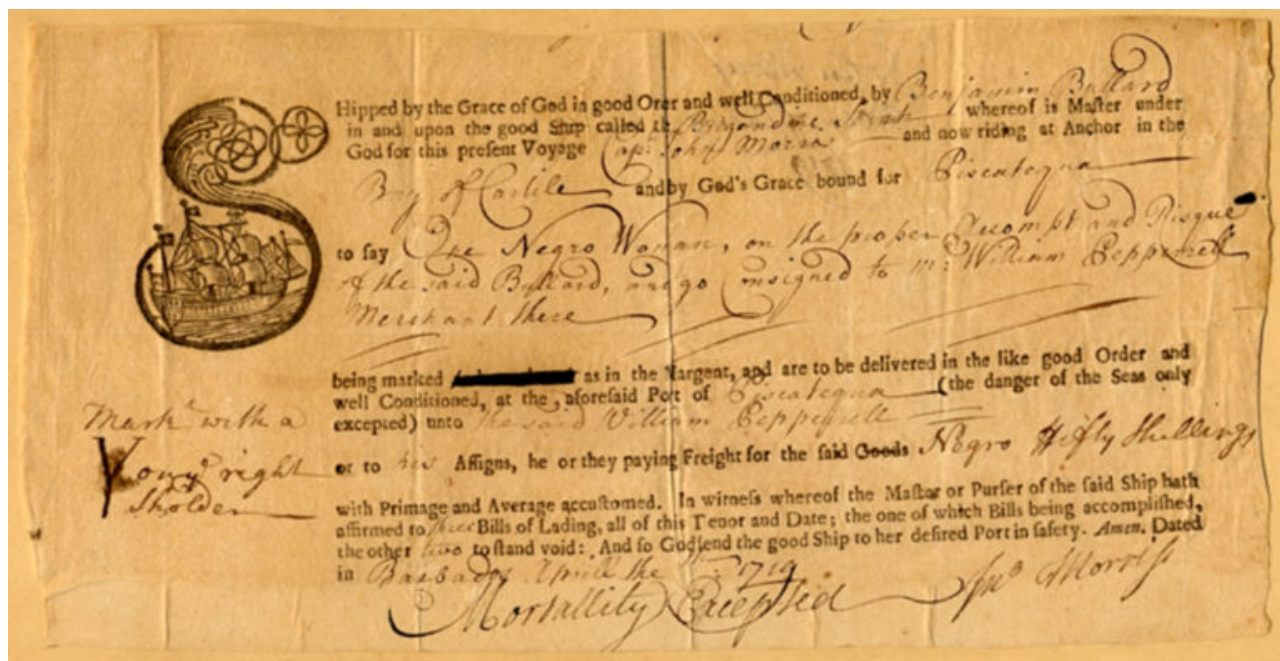 SHipped by the Grace of God in good Orer and well Conditioned, by Benjamin Bullard
in and upon the good Ship called the Brigandine Sarah whereof is Master under
God for this present Voyage Cap: John Morris and now riding at Anchor in the
Bay of Carlile and by God's Grace bound for Piscatequa
to say One Negro Woman, on the proper Accompt and Risque
of the said Bullard, and go Consigned to mr: William Pepperrell
Merchant there
being marked as in the Margent, and are to be delivered in the like good Order and
well Conditioned, at the aforesaid Port of Piscatequa (the danger of the Seas only
Markt with a
excepted) unto the said William Pepperrell
Y on ye right
or to his Assigns, he or they paying Freight for the said Goods Negro Fifty Shillings
Sholder
with Primage and Average accustomed. In witness whereof the Master or Purser of the said Ship hath
affirmed to three Bills of Lading, all of this Tenor and Date; the one of which Bills being accomplished,
the other two to stand void: And so God send the good Ship to her desired Port in safety. Amen. Dated
in Barbados Aprill the 1719
Mortallity Excepted Jno Morris